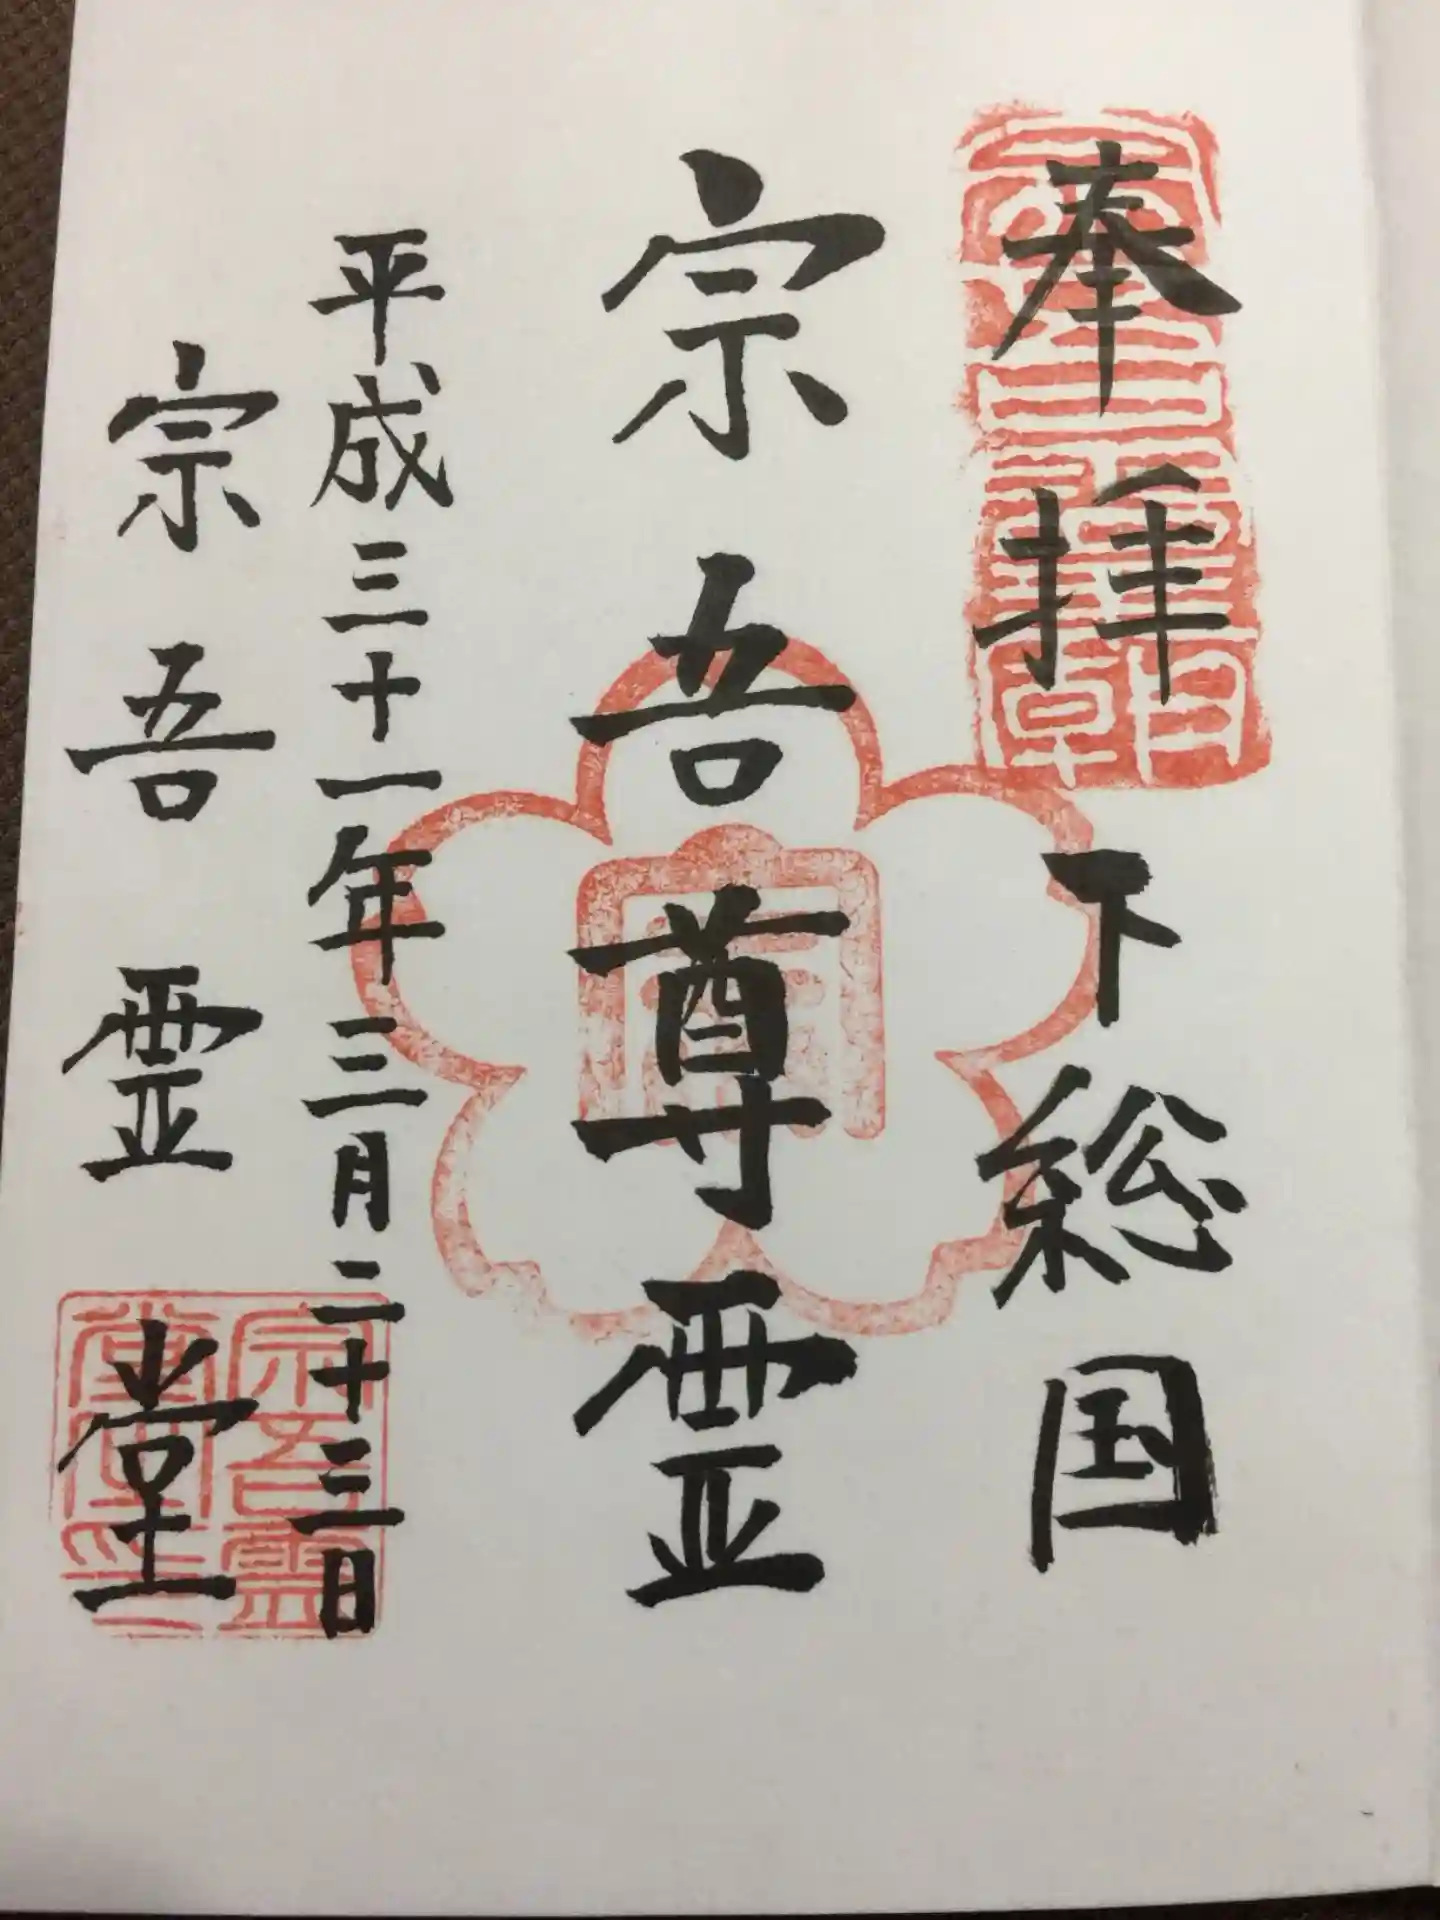 奉拝 下総国
宗吾尊霊
平成三十一年三月二十三日
宗吾霊堂
宗吾霊
堂